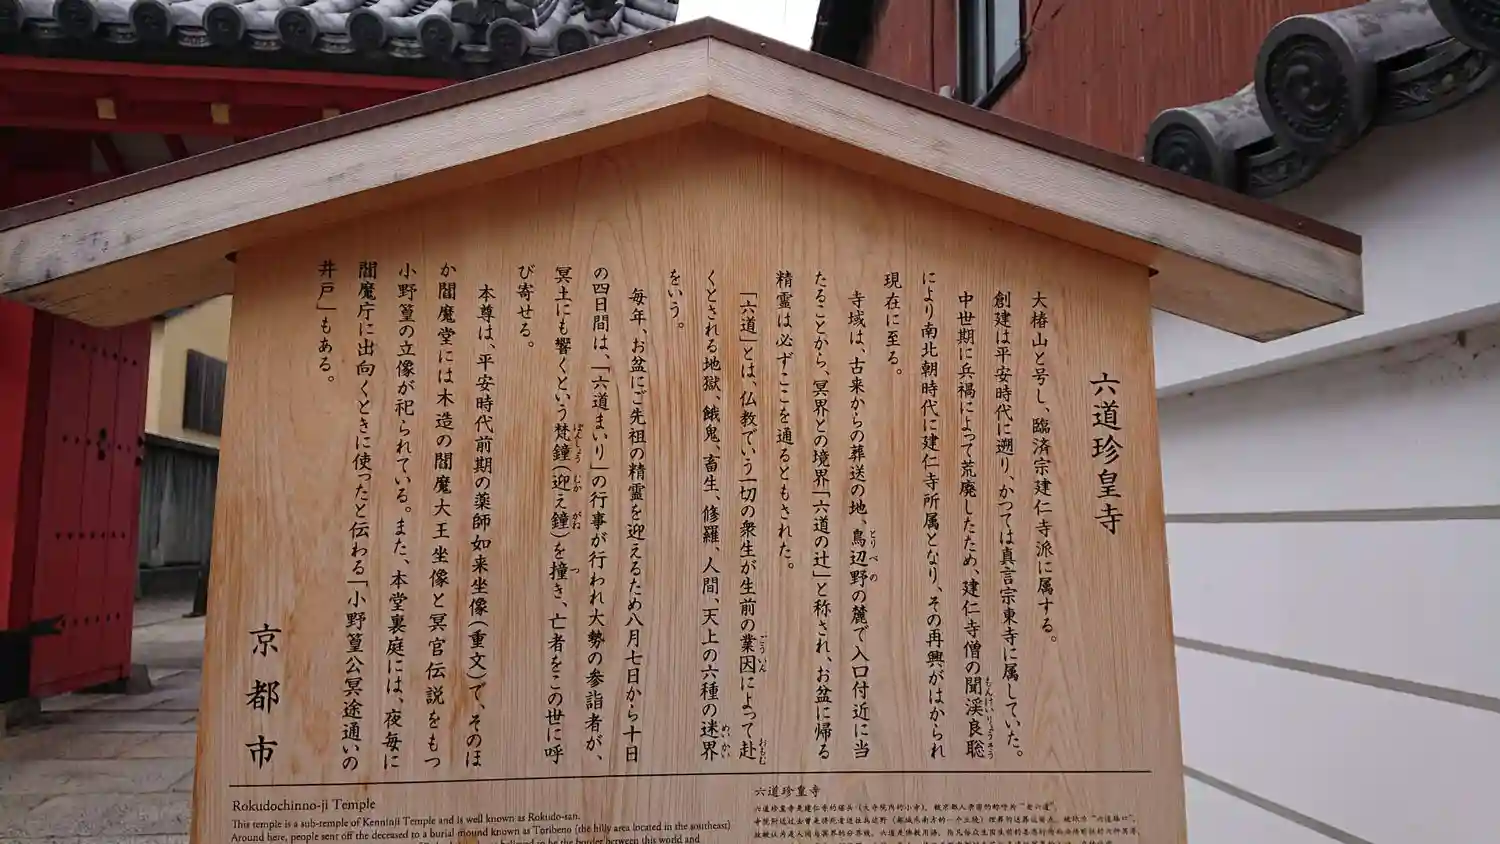 六道珍皇寺
大椿山と号し、臨済宗建仁寺派に属する。
創建は平安時代に遡り、かつては真言宗東寺に属していた。
中世期に兵禍によって荒廃したため、建仁寺僧の聞渓良聡
もんけいりょうそう
により南北朝時代に建仁寺所属となり、その再興がはかられ
現在に至る。
寺域は、古来からの葬送の地、鳥辺野の麓で入口付近に当
とりべの
たることから、冥界との境界「六道の辻」と称され、お盆に帰る
精霊は必ずここを通るともされた。
「六道」とは、仏教でいう一切の衆生が生前の業因によって赴
ごういん おもむ
くとされる地獄、餓鬼、畜生、修羅、人間、天上の六種の迷界
めいかい
をいう。
毎年、お盆にご先祖の精霊を迎えるため八月七日から十日
の四日間は、「六道まいり」の行事が行われ大勢の参詣者が、
冥土にも響くという梵鐘(迎え鐘)を撞き、亡者をこの世に呼
ぼんしょう むか がね つ
び寄せる。
本尊は、平安時代前期の薬師如来坐像(重文)で、そのほ
か閻魔堂には木造の閻魔大王坐像と冥官伝説をもつ
小野篁の立像が祀られている。また、本堂裏庭には、夜毎に
閻魔庁に出向くときに使ったと伝わる「小野篁公冥途通いの
井戸」もある。
京都市
Rokudochinno-ji Temple
This temple is a sub-temple of Kenninji Temple and is well known as Rokudo-san.
Around here, people sent off the deceased to a burial mound known as Toribeno (the hilly area located in the southeast)
to be the border between this world and
六道珍皇寺